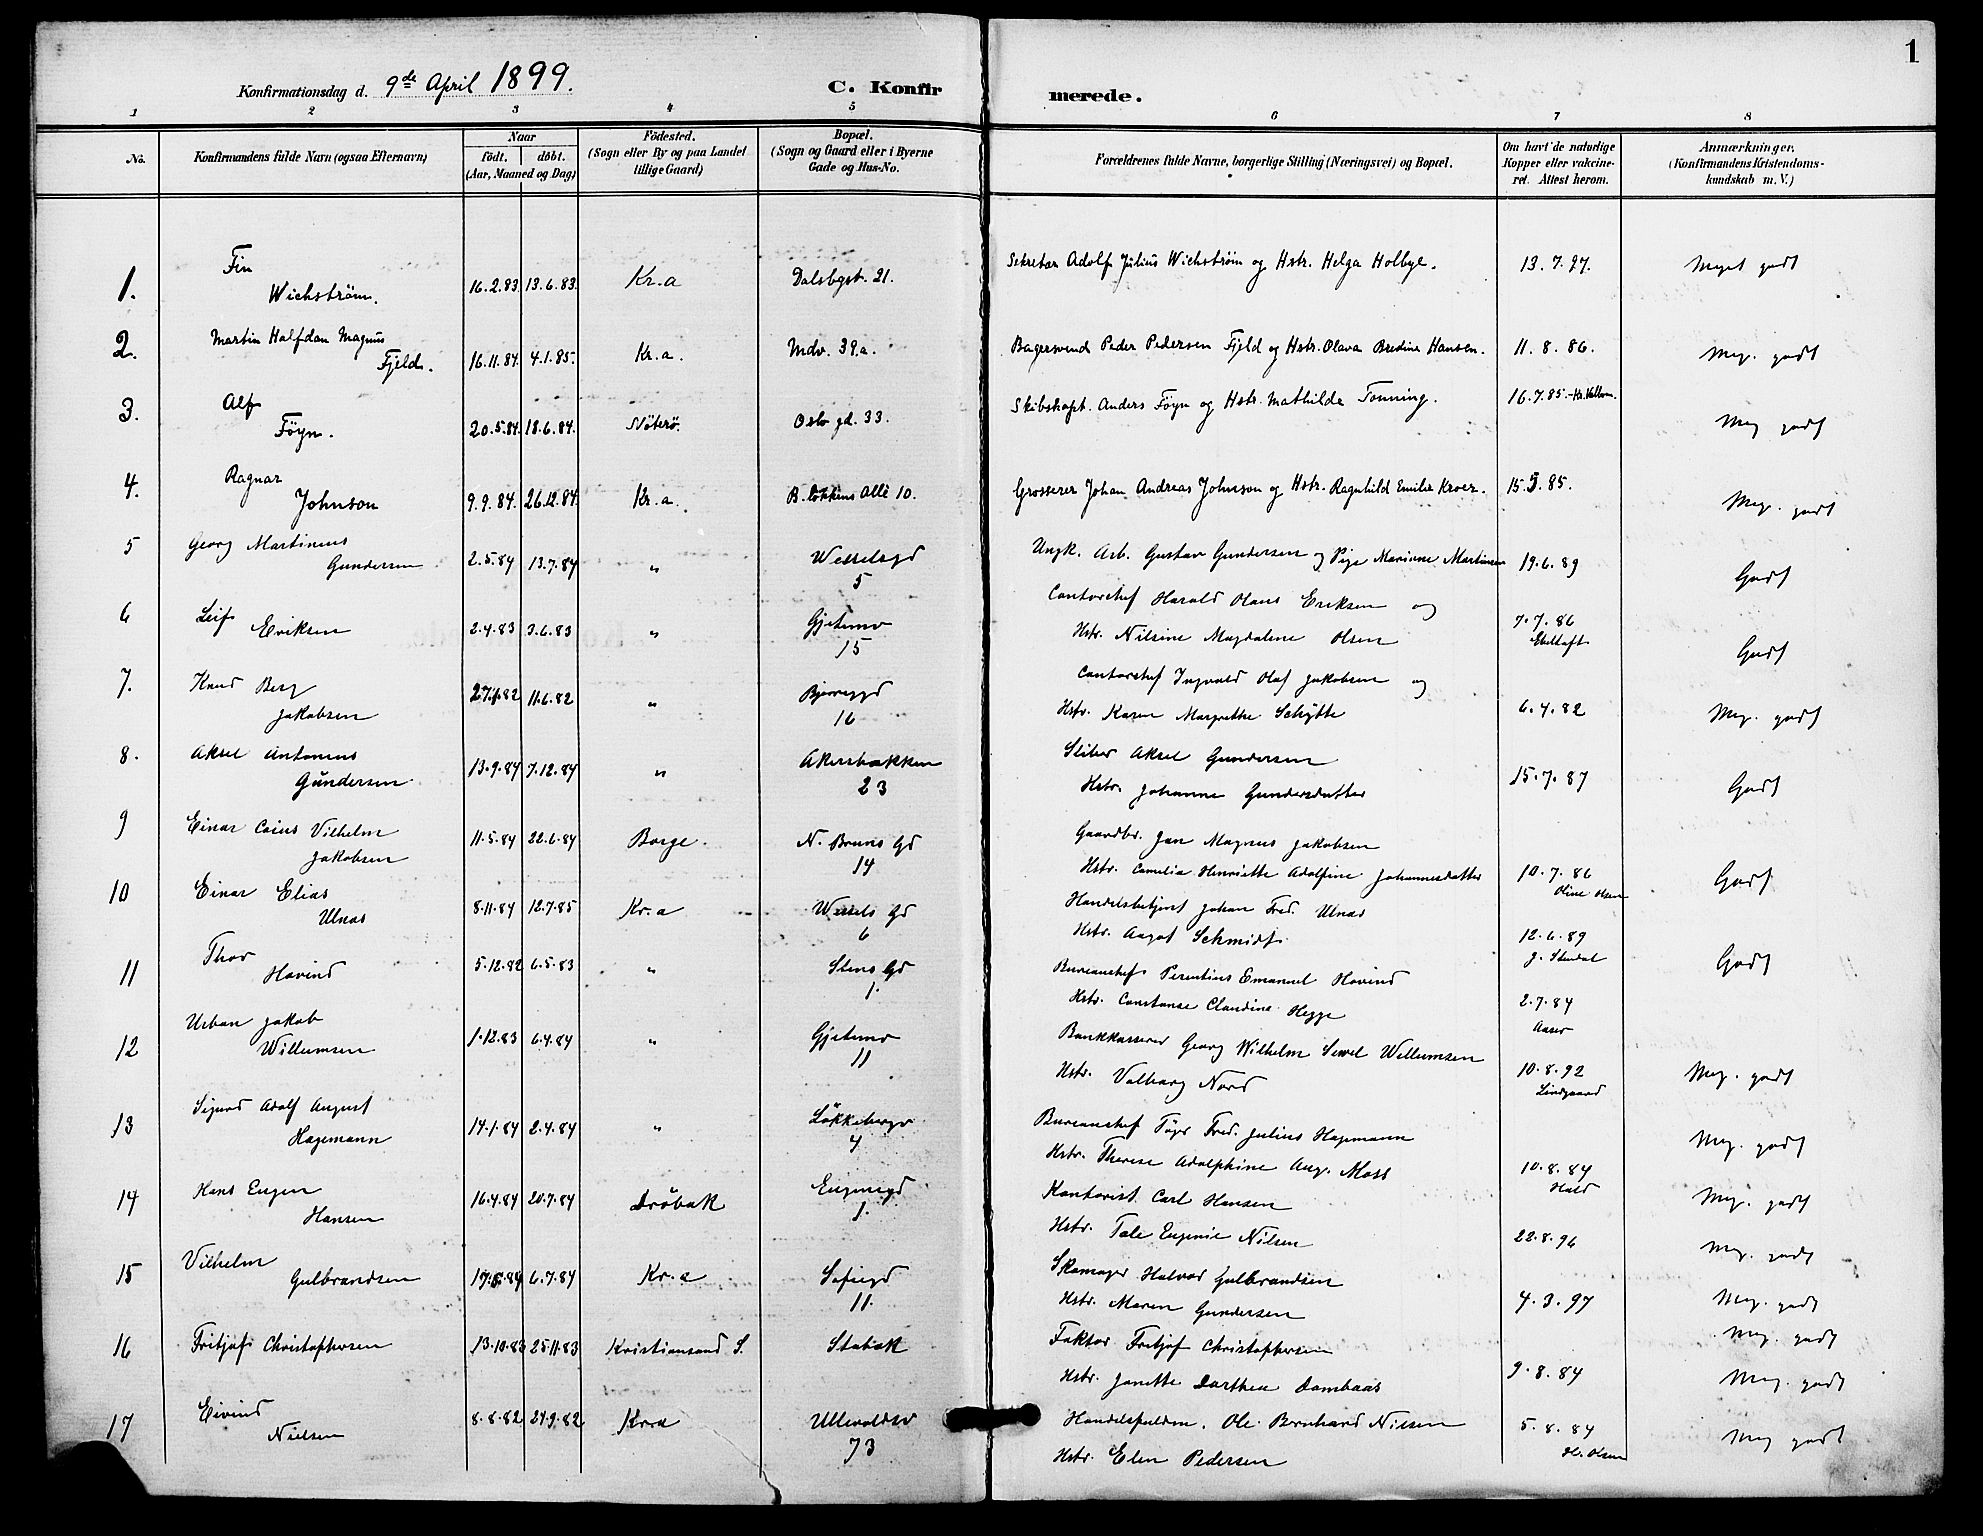 1
Konfirmationsdag d. 9de April 1899.
C. Konfirmerede.
1 2 3 4 5 6 7 8
No. Konfirmandens fulde Navn (ogsaa Efternavn) Naar født. døbt. (Aar, Maaned og Dag) Fødested. (Sogn eller By og paa Landet tillige Gaard) Bopæl. (Sogn og Gaard eller i Byerne Gade og Hus-No. Forældrenes fulde Navne, borgerlige Stilling (Næringsvei) og Bopæl. Om havt de naturlige Kopper eller vaccineret. Attest herom. Anmærkninger. (Konfirmandens Kristendomskundskab m. V.)
1. Fin Wichstrøm. 16.2.83. 13.6.83. Kr.a Dalsbgst. 21. Sekretær Adolf Julius Wichstrøm og Hstr. Helga Holbye. 13.7.97. Meget godt
2. Martin Halfdan Magnus Fjeld. 16.11.84. 4.1.85. Kr.a. Mdv. 39.a. Bagersvend Peder Pedersen Fjeld og Hstr. Olava Bredine Hansen. 11.8.86. Meg. godt
3. Alf Föyn. 20.5.84. 18.6.84. Nöterö. Oslo gd. 33. Skibskapt. Anders Föyn og Hstr. Mathilde Tonning. 16.7.85. Meg godt
4. Ragnar Johnson 9.9.84. 26.12.84. Kr.a. B.løkkens Allé 10. Grosserer Johan Andreas Johnson og Hstr. Ragnhild Emilie Kroer. 15.5.85. Meg. godt
5 Georg Martinius Gundersen 2.5.84 13.7.84 " Wesselsgd 5 Ungk. Arb. Gustav Gundersen og Pige Mariane Martinsen 19.6.89 Godt
6 Leif Eriksen 2.4.83 3.6.83 " Gjetemv 15 Contorchef Harald Hans Eriksen og Hstr. Nilsine Magdalene Olsen 7.7.86 Ebeltoft Godt
7. Knud Berg Jakobsen 27.1.82 11.6.82 " Bjerregd 16 Contorchef Ingvald Olaf Jakobsen og Hstr. Karen Margrethe Schytte 6.4.82 Meg. godt
8. Aksel Antonius Gundersen 13.9.84 7.12.84 " Akersbakken 23 Sliber Aksel Gundersen Hstr. Johanne Gundersdatter 15.7.87 Godt
9 Einar Caius Vilhelm Jakobsen 11.5.84 22.6.84 Borge. N. Bruns Gd 14 Gaardbr. Jan Magnus Jakobsen Hstr. Camelia Henriette Adolfine Johannesdatter 10.7.86 Oline Olsen Godt
10 Einar Elias Ulnas 8.11.84 12.7.85 Kr.a Wessels Gd 6 Handelsbetjent Johan Fred. Ulnas Hstr. Aagot Schmidt. 12.6.89 J. Stendal Godt
11 Thor Hovind 5.12.82 6.5.83 " Stens Gd 1. Bureauchef Perentius Emanuel Hovind Hstr. Constanse Claudine Hegge 2.7.84 Aaser
12 Urban Jakob Willumsen 1.12.83 6.4.84 " Gjetemv 11 Bankkasserer Georg Wilhelm Sewel Willumsen Hstr. Valborg Nord 10.8.92 Lindgaard Meg. godt
13 Sigurd Adolf August Hagemann 14.1.84 2.4.84 " Løkkebergv 4 Bureauchef Töger Fred. Julius Hagemann Hstr. Therese Adolphine Aug. Moss 10.8.84 Hald Meg. godt
14 Hans Eugen Hansen 16.4.84 20.7.84 Dröbak Eugeniegd 1. Kontorist Carl Hansen Hstr. Tale Eugenie Nilsen 22.8.96 Meg. godt
Meg. godt
15 Vilhelm Gulbrandsen 17.5.84 6.7.84 Kr.a Sofiegd 11. Skomager Halvor Gulbrandsen Hstr. Maren Gundersen 4.3.97 Meg. godt
16 Fritjof Christophersen 13.10.83 25.11.83 Kristiansand S. Stabæk Faktor Fritjof Christophersen Hstr. Janette Dorthea Dombaas 9.8.84 Meg. godt
Meg. godt
17 Eivind Nielsen 8.8.82 24.9.82 Kr.a Ullevoldsv 73 Handelsfuldm. Ole Bernhard Nilsen Hstr. Elen Pedersen 5.8.84 Meg godt